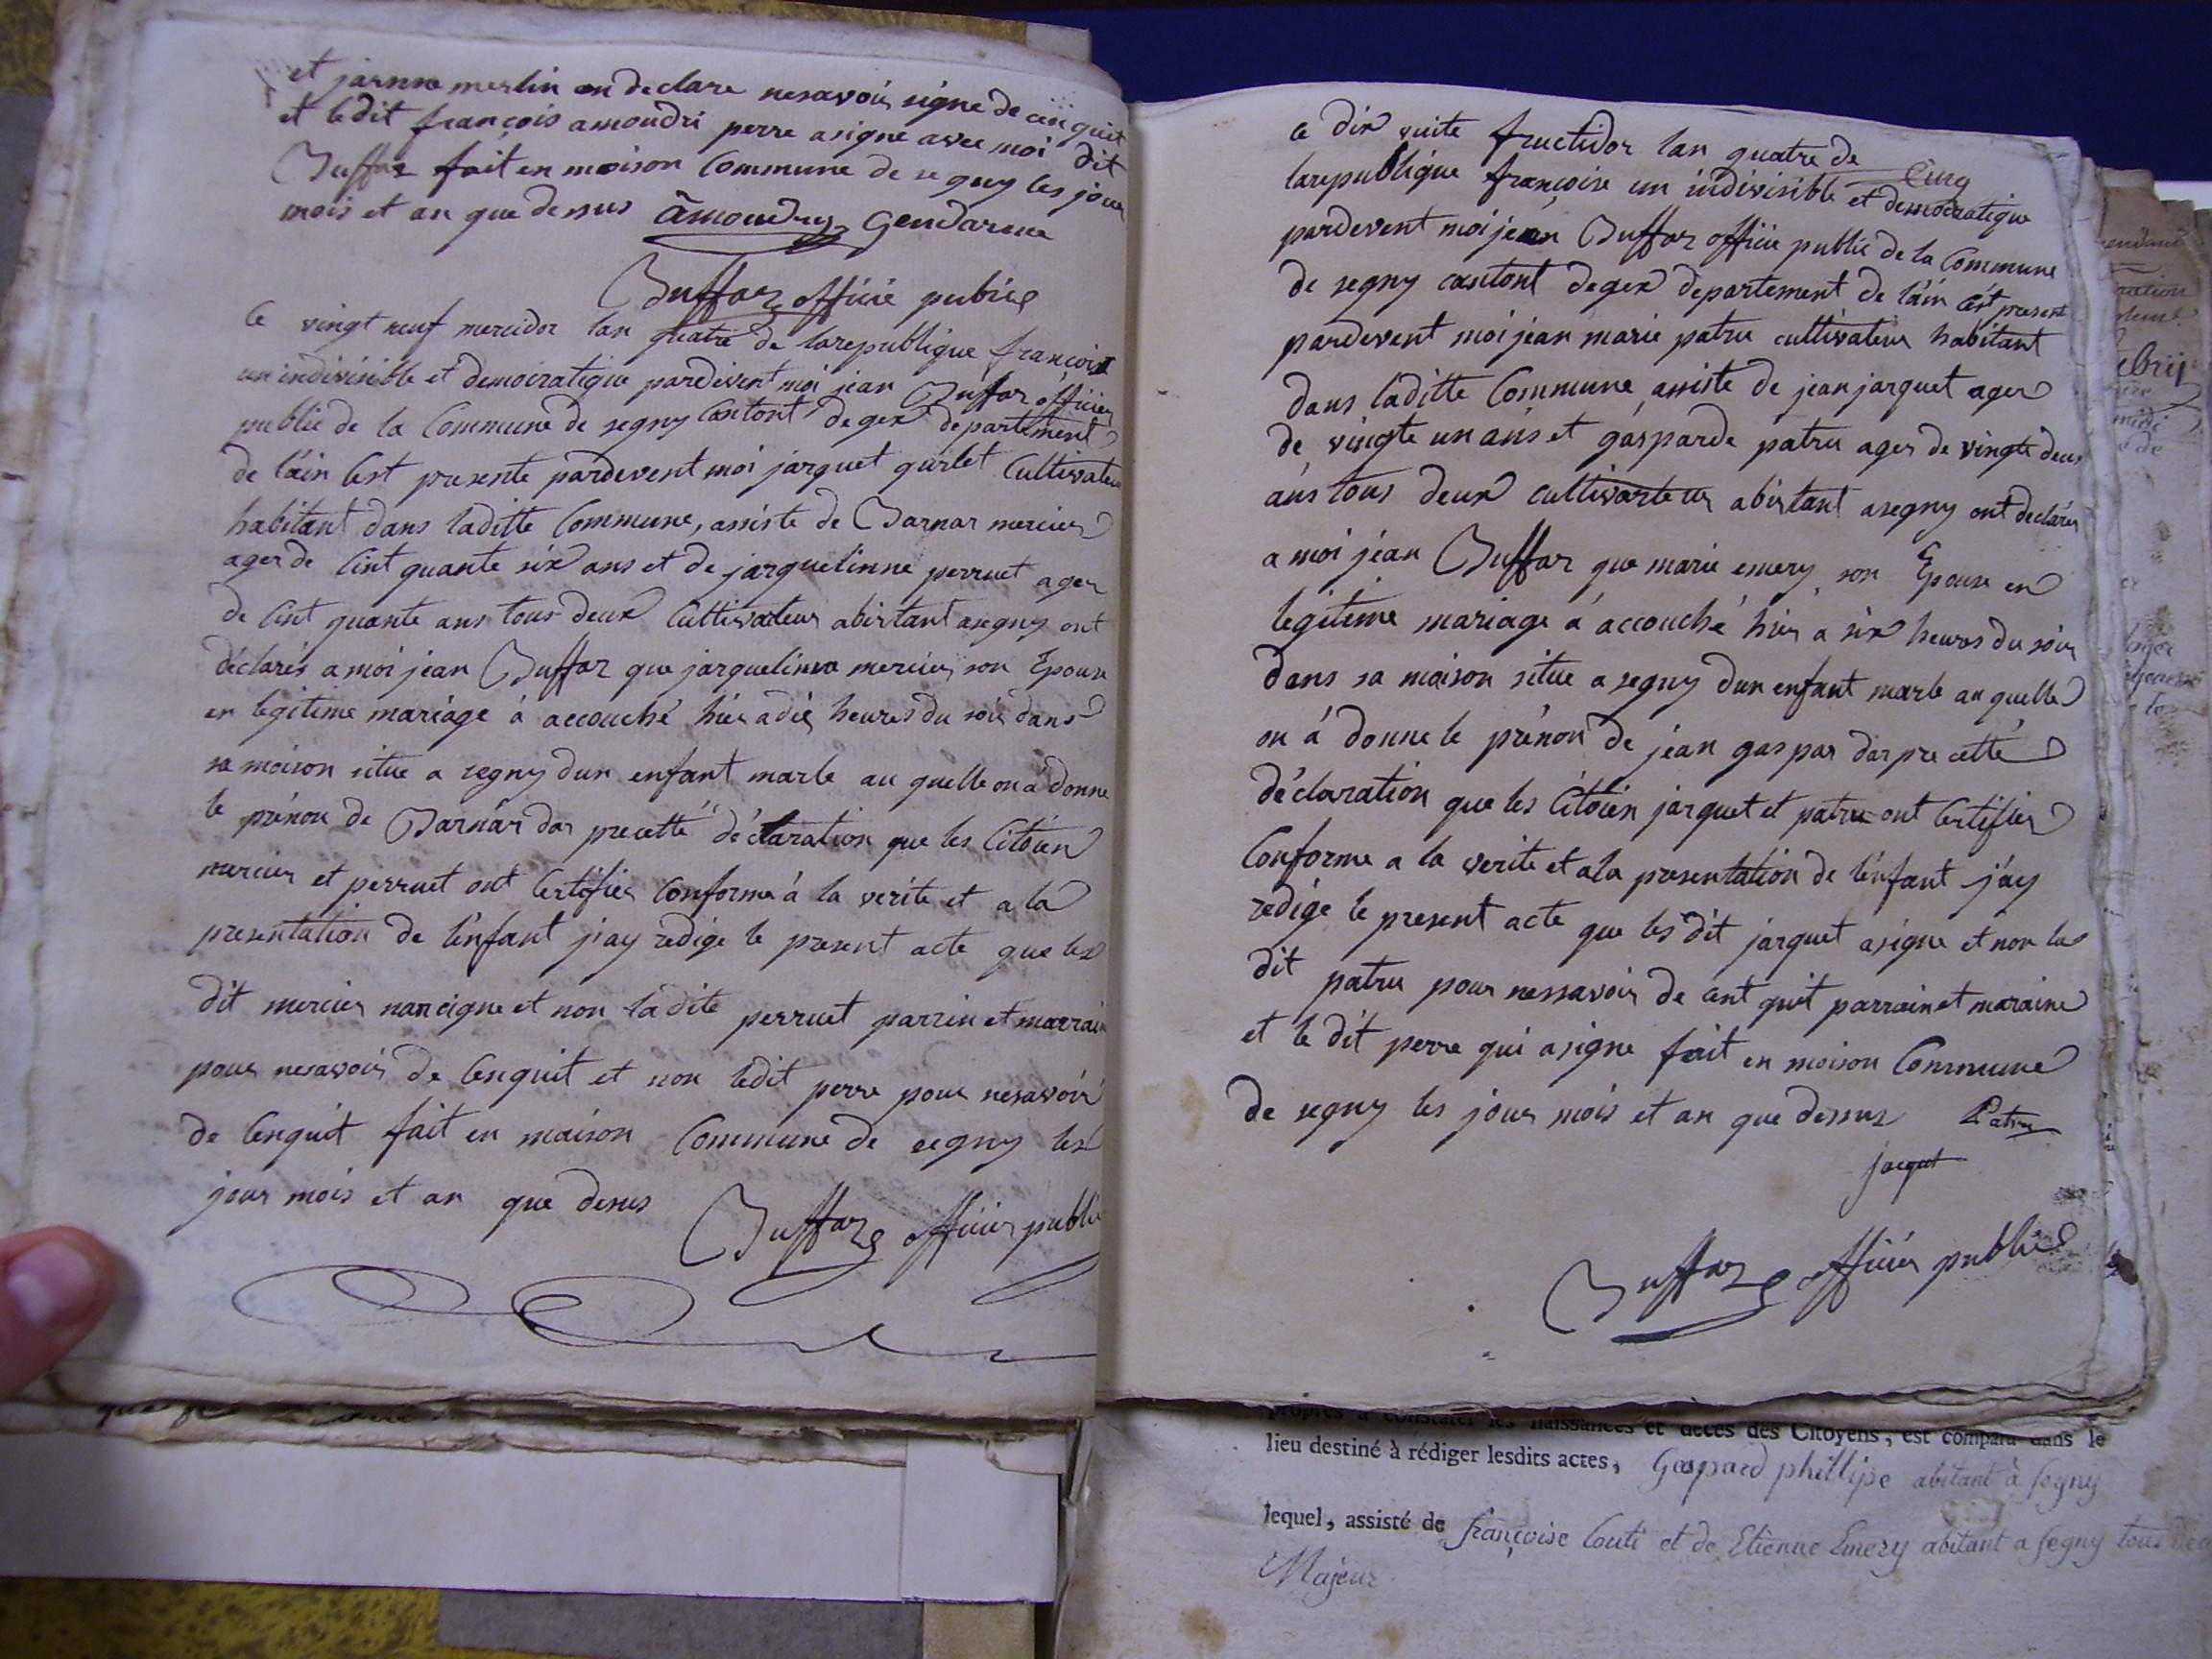 et jarnne merlin on declare nesavoir signe de ceci quit
et ledit françois amoudri perre a signe avec moi dit
Buffaz fait en moison Commune de segny les jour
mois et an que desus amoudruz Gendarme
Buffaz officie publice
Ce vingt neuf mercidor lan quatre de larepublique françois
un indivisible et democratique pardevent moi jean Buffaz officier
publie de la Commune de segny Cantont de gex departement
de lain sest presente pardevent moi jarquet gurlet Cultivateur
habitant dans laditte Commune, assiste de Barnar mercier
ager de Cint quante six ans et de jarquelinne perruet ager
de Cint quante ans tous deux Cultivateur abistant asegny ont
declarés a moi jean Buffaz que jarquelinna mercier son Epouse
en legitime mariage à accouché hier a dis heures du soir dans
sa moison situe a segny dun enfant marle au quelle on a donne
le prénon de Barnár dar precette déclaration que les Citoien
mercier et perruet ont Certifier Conforme à la verite et a la
presentation de lenfant j'ay redige le present acte que les
dit mercier nan cigne et non ladite perruet parrin et marrain
pour nesavoir de Cenquit et non ledit perre pour nesavoir
de Cenquit fait en maison Commune de segny les
jour mois et an que desus Buffaz officier public
ce dix vuite fructidor lan quatre de
larepublique françoise un indivisible et democratique
pardevent moi jean Buffaz officie public de la Commune
de segny cantont de gex departement de lain cest present
pardevent moi jean marie patru cultivateur habitant
dans laditte Commune assiste de jean jarquet ager
de vingte un ans et gasparde patru ager de vingte deux
ans tous deux cultivarteur abistant a segny ont declarer
a moi jéan Buffaz que marie emery son Epouse en
legitime mariage à accouché hier à six heures du soir
dans sa moison situe a segny dun enfant marle au quelle
on à donne le prénon de jéan gaspar dar pre cette
déclaration que les Citoien jarquet et patru ont Certifier
Conforme a la verite et a la presentation de lenfant j'ay
redige le present acte que les dit jarquet a signe et non la
dit patru pour nessavoir de cent quit parrain et maraine
et le dit perre qui a signe fait en moison Commune
de segny les jour mois et an que dessus Patru
jaquet
Buffaz officier public
propres à constater les naissances et décès des Citoyens, est comparu dans le
lieu destiné à rédiger lesdits actes, Gaspard phillipe abitant à segny
lequel, assisté de françoise Couti et de Etienne Emery abitant a segny tous deu
Majeur